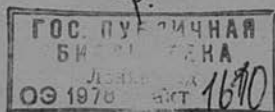 ГОС. ПУБЛИЧНАЯ
БИБЛИОТЕКА
ОЭ 1978 акт 1610